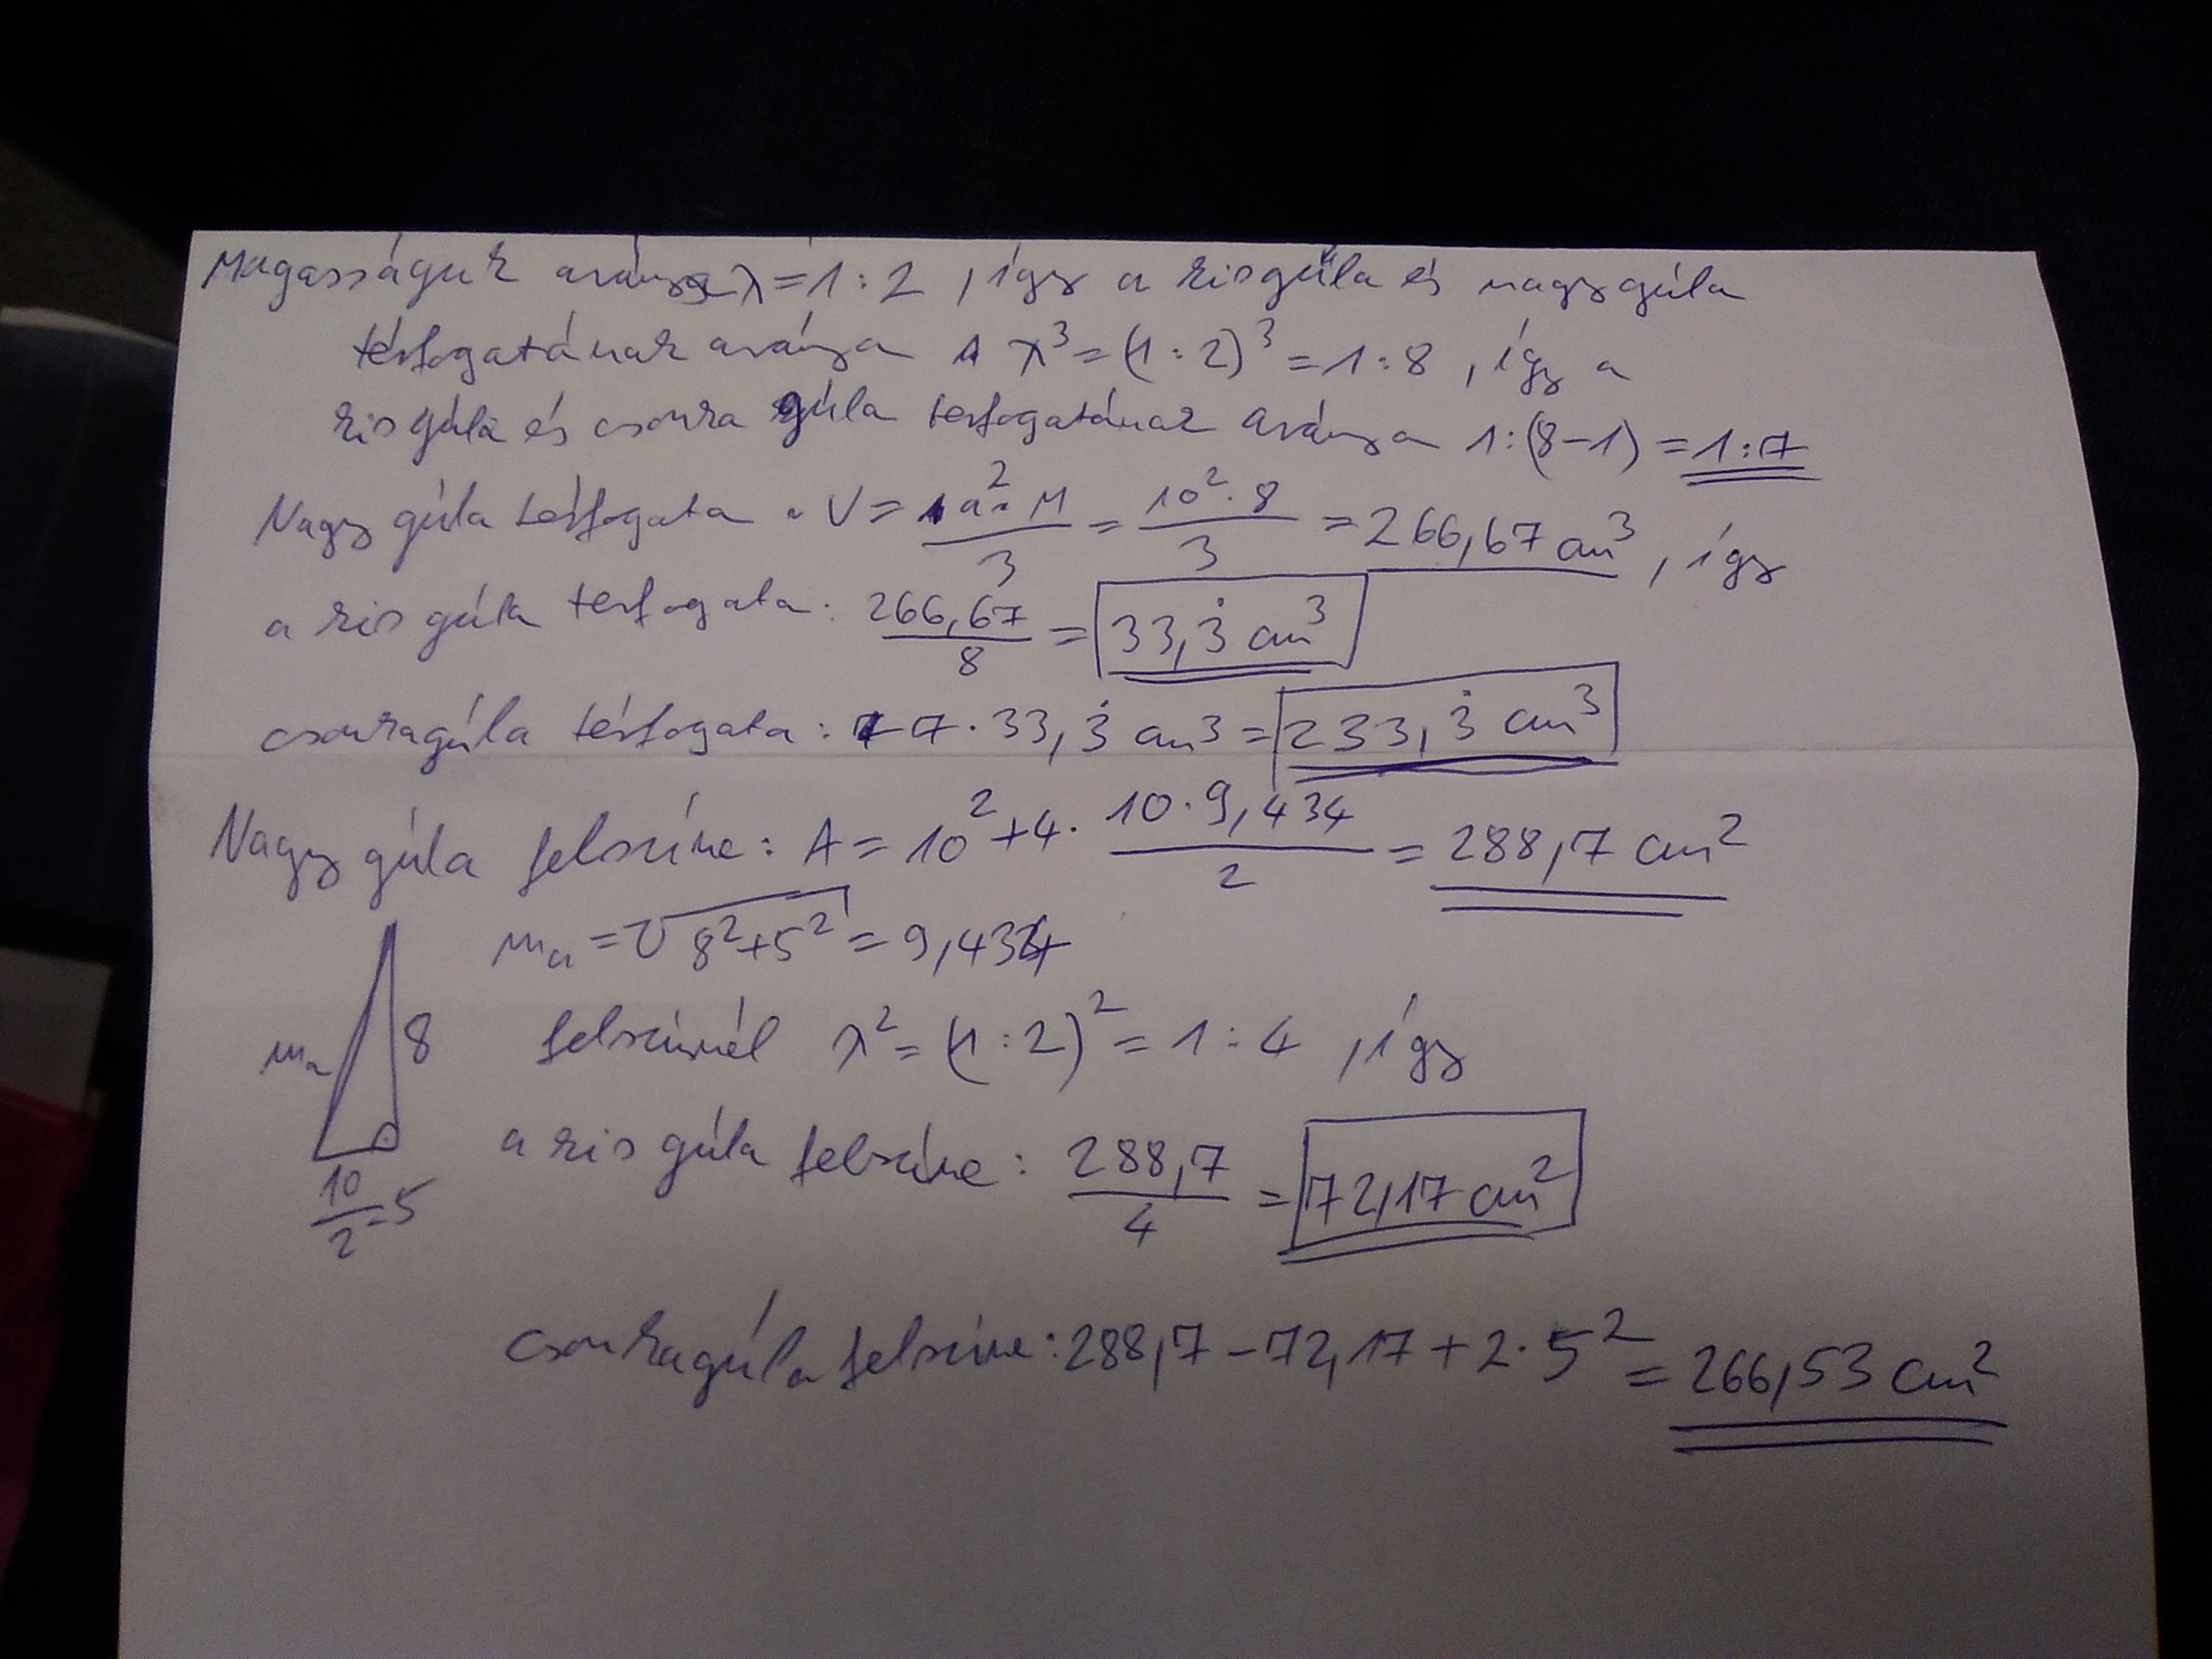 Magasságuk aránya λ = 1 : 2 , így a kisgúla és nagygúla
térfogatának aránya λ³ = (1 : 2)³ = 1 : 8 , így a
kisgúla és csonka gúla térfogatának aránya 1 : (8 - 1) = 1 : 7
Nagy gúla térfogata : V = a² · M / 3 = 10² · 8 / 3 = 266,67 cm³ , így
a kis gúla térfogata : 266,67 / 8 = 33,3̇ cm³
csonkagúla térfogata : 7 · 33,3̇ cm³ = 233,3̇ cm³
Nagy gúla felszíne : A = 10² + 4 · 10 · 9,434 / 2 = 288,7 cm²
mₐ = √8² + 5² = 9,434
mₐ 8 felszínnél λ² = (1 : 2)² = 1 : 4 , így
a kis gúla felszíne : 288,7 / 4 = 72,17 cm²
10 / 2 = 5
csonkagúla felszíne : 288,7 - 72,17 + 2 · 5² = 266,53 cm²